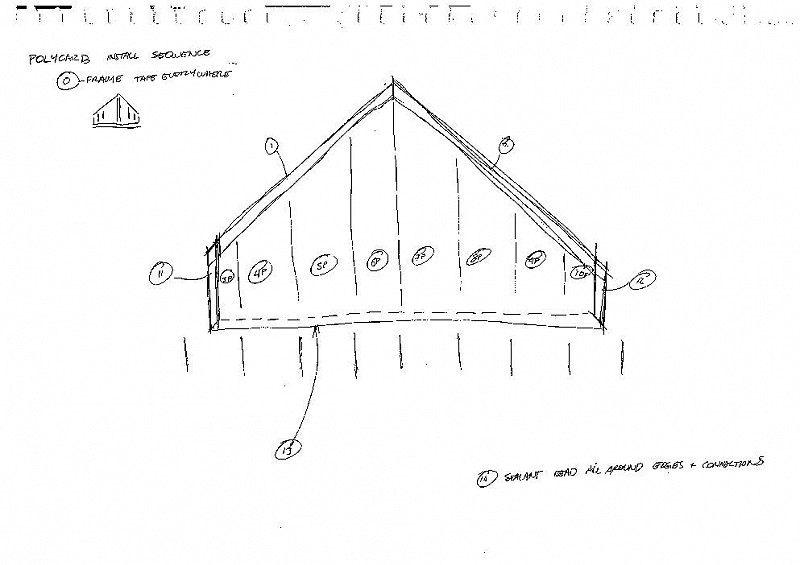 POLYCARB INSTALL SEQUENCE
0 - FRAME TAPE EVERYWHERE
1
2
11
3P
4P
5P
6P
7P
8P
9P
10P
12
13
14 SEALANT BEAD ALL AROUND EDGES + CONNECTIONS